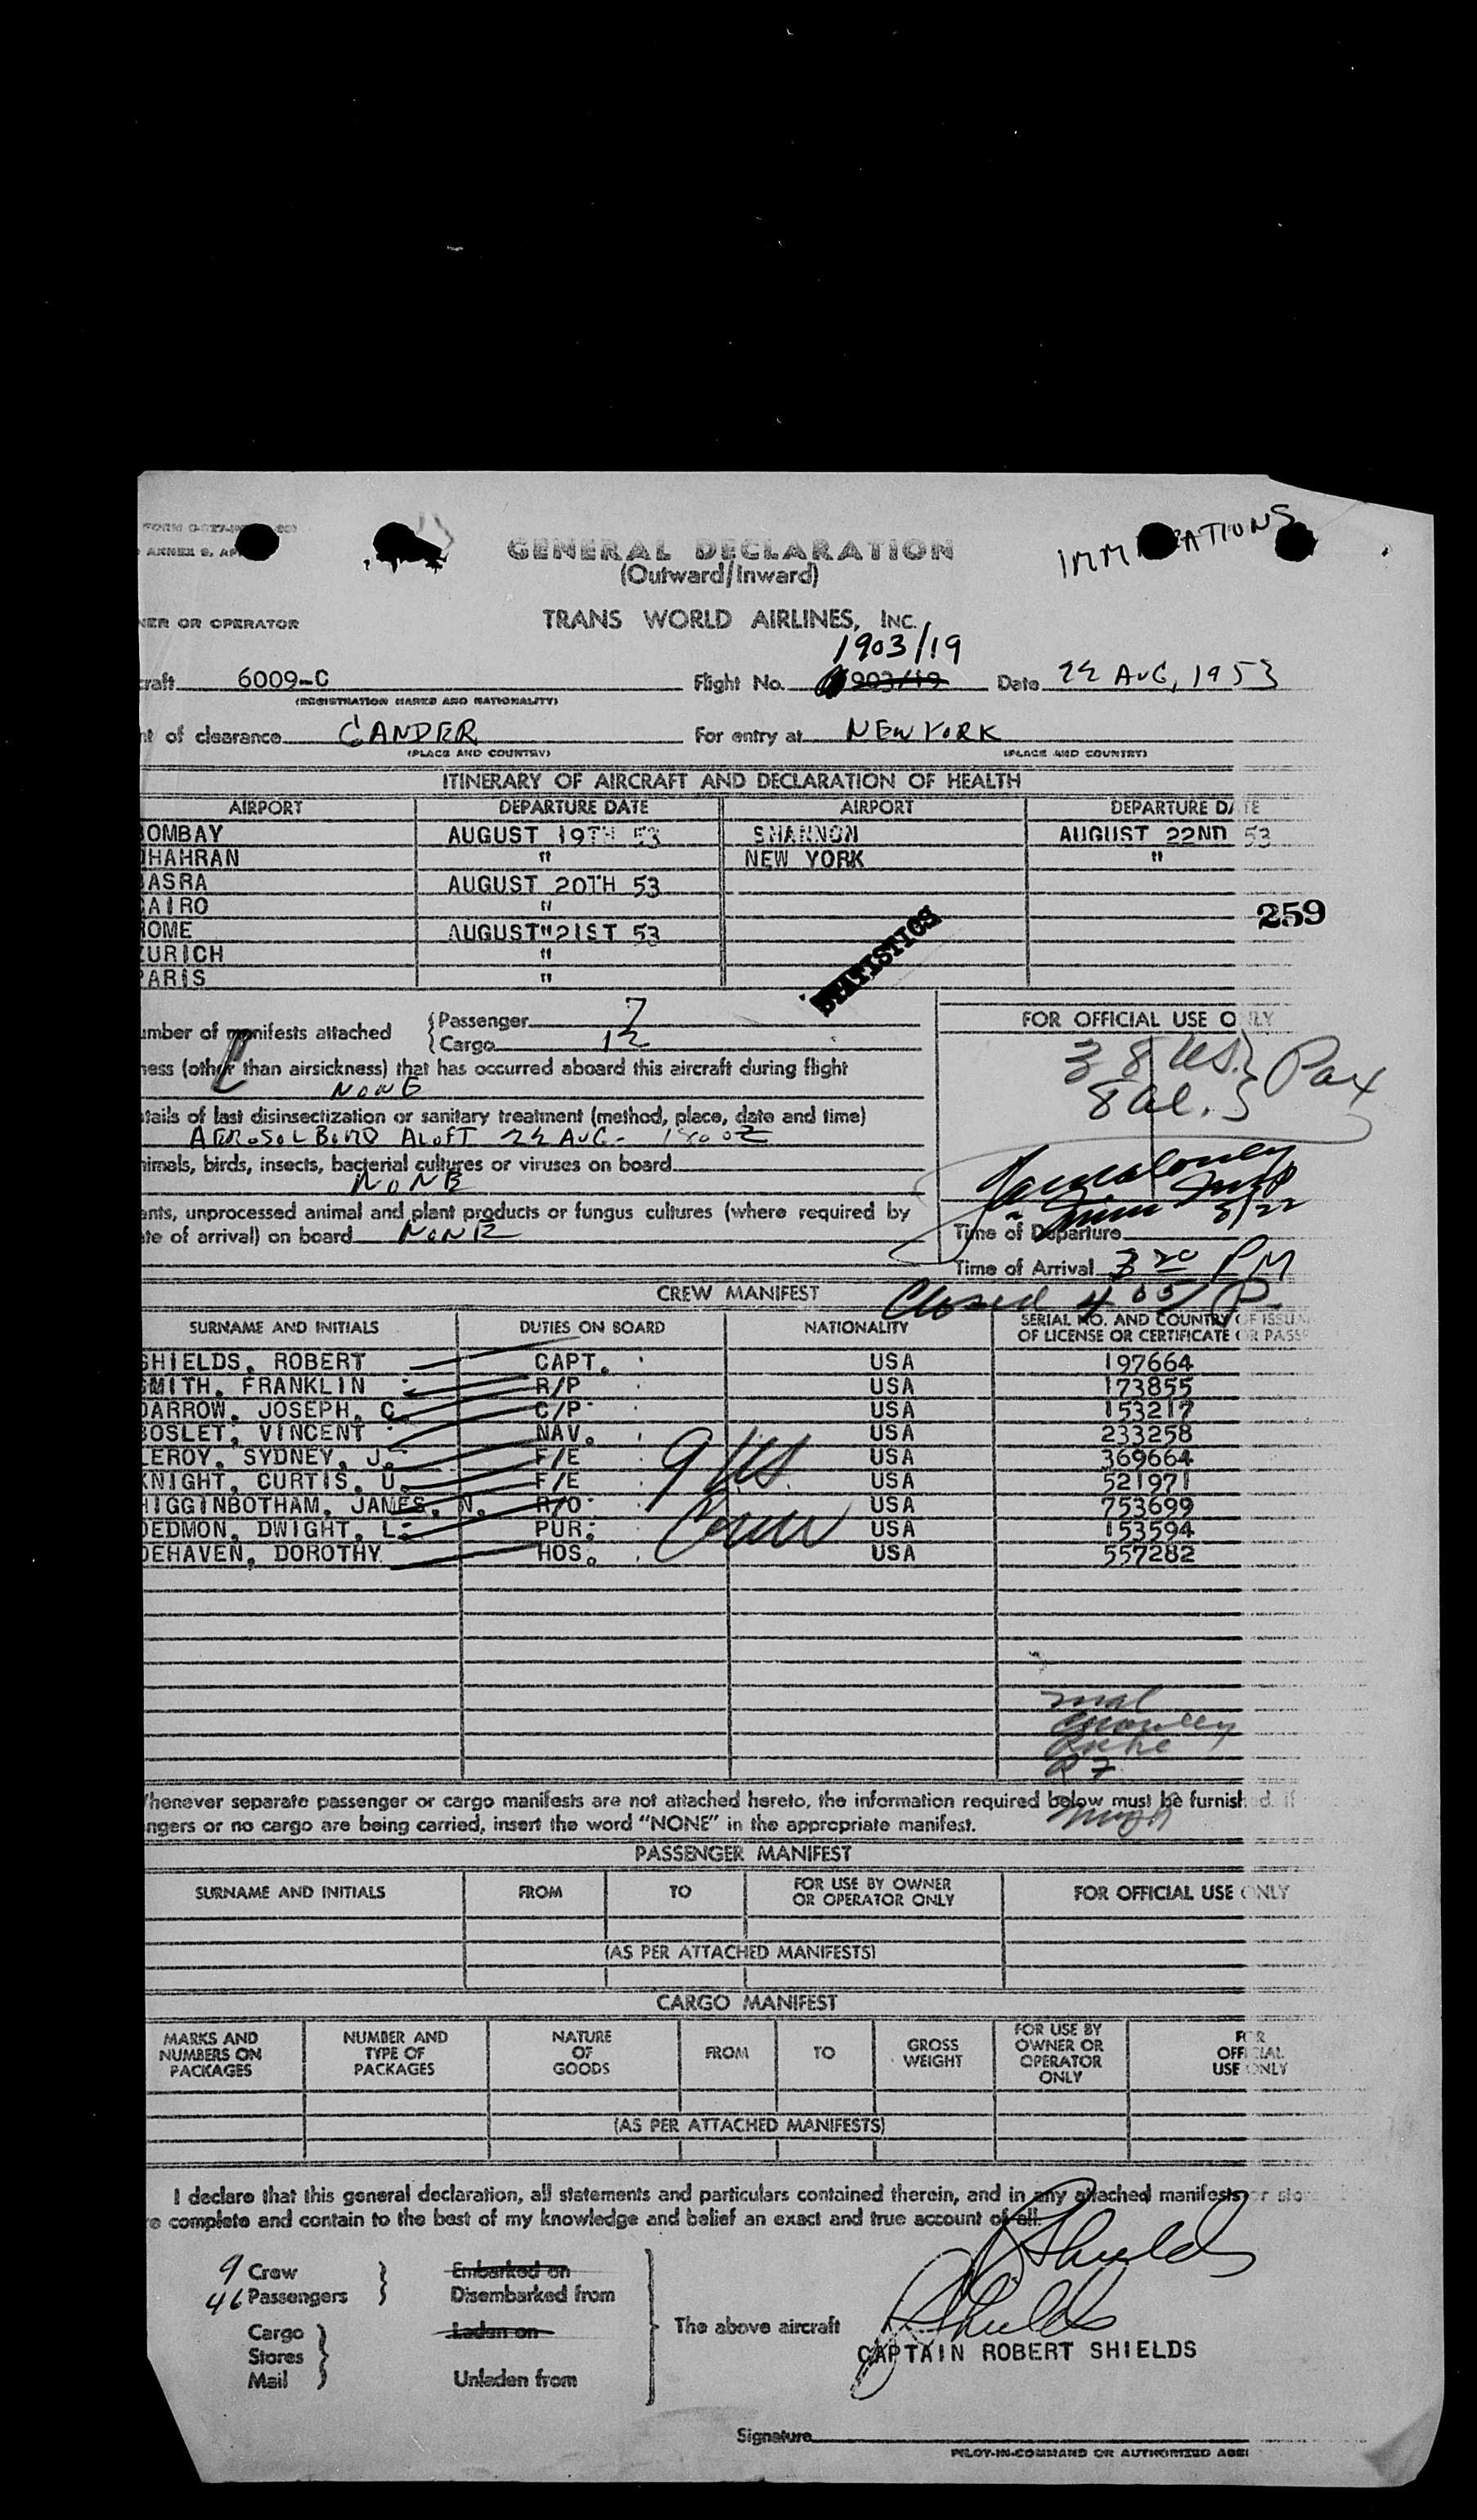 GENERAL DECLARATION
(Outward/Inward)
IMM ATIONS
NER OR OPERATOR
TRANS WORLD AIRLINES, INC.
1903/19
craft 6009-C Flight No. 903/19 Date 22 AUG, 1953
(REGISTRATION MARKS AND NATIONALITY)
nt of clearance GANDER For entry at NEW YORK
(PLACE AND COUNTRY) (PLACE AND COUNTRY)
ITINERARY OF AIRCRAFT AND DECLARATION OF HEALTH
AIRPORT DEPARTURE DATE AIRPORT DEPARTURE DATE
BOMBAY AUGUST 19TH 53 SHANNON AUGUST 22ND 53
DHAHRAN " NEW YORK "
BASRA AUGUST 20TH 53
CAIRO "
259
ROME AUGUST"21ST 53
ZURICH "
PARIS "
STATISTICS
umber of manifests attached {Passenger 7
{Cargo 12
FOR OFFICIAL USE ONLY
38 US. } Pax
8 al. }
ness (other than airsickness) that has occurred aboard this aircraft during flight
NONE
tails of last disinsectization or sanitary treatment (method, place, date and time)
AEROSOL BOMB ALOFT 22 AUG-
nimals, birds, insects, bacterial cultures or viruses on board
NONE
ants, unprocessed animal and plant products or fungus cultures (where required by
te of arrival) on board NONE
8/22
Time of Departure
Time of Arrival 3 20 PM
Closed 4 05 P
CREW MANIFEST
SURNAME AND INITIALS DUTIES ON BOARD NATIONALITY SERIAL NO. AND COUNTRY OF ISSU
OF LICENSE OR CERTIFICATE OR PASS
SHIELDS, ROBERT CAPT. USA 197664
SMITH, FRANKLIN R/P USA 173855
DARROW, JOSEPH, C. C/P USA 153217
BOSLET, VINCENT NAV. USA 233258
LEROY, SYDNEY, J. F/E USA 369664
KNIGHT, CURTIS, U. F/E USA 521971
HIGGINBOTHAM, JAMES, N. R/O USA 753699
DEDMON, DWIGHT, L. PUR. USA 153594
DEHAVEN, DOROTHY HOS. USA 557282
9 US.
Crew
Whenever separate passenger or cargo manifests are not attached hereto, the information required below must be furnished. If
ngers or no cargo are being carried, insert the word "NONE" in the appropriate manifest.
PASSENGER MANIFEST
SURNAME AND INITIALS FROM TO FOR USE BY OWNER OR OPERATOR ONLY FOR OFFICIAL USE ONLY
(AS PER ATTACHED MANIFESTS)
CARGO MANIFEST
MARKS AND NUMBERS ON PACKAGES NUMBER AND TYPE OF PACKAGES NATURE OF GOODS FROM TO GROSS WEIGHT FOR USE BY OWNER OR OPERATOR ONLY FOR OFFICIAL USE ONLY
(AS PER ATTACHED MANIFESTS)
I declare that this general declaration, all statements and particulars contained therein, and in any attached manifests or stor
e complete and contain to the best of my knowledge and belief an exact and true account of all.
R Shields
9 Crew } Embarked on
46 Passengers } Disembarked from
R Shields
Cargo } Laden on The above aircraft
CAPTAIN ROBERT SHIELDS
Stores
Mail } Unladen from
Signature
PILOT-IN-COMMAND OR AUTHORIZED AGE